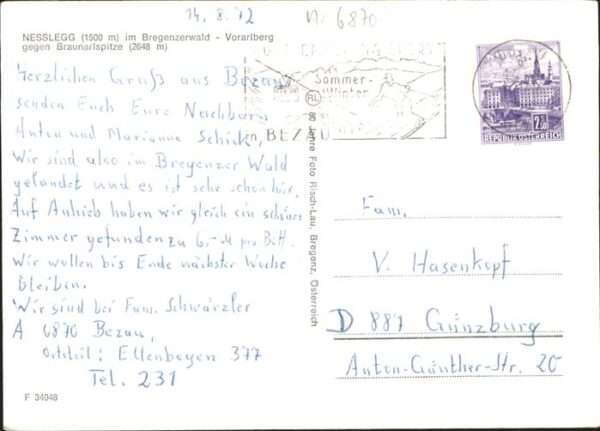 14. 8. 72
n. 6870
NESSLEGG (1500 m) im Bregenzerwald - Vorarlberg
gegen Braunarlspitze (2648 m)
Herzlichen Gruß aus Bezau
senden Euch Eure Nachbarn
Anton und Marianne Schick,
Wir sind also im Bregenzer Wald
gelandet und es ist sehr schön hier.
Auf Anhieb haben wir gleich ein schönes
Zimmer gefunden zu 6,- M pro Bett.
Wir wollen bis Ende nächster Woche
bleiben.
Wir sind bei Fam. Schwärzler
A 6870 Bezau,
Ortsteil: Ellenbogen 377
Tel. 231
F 34048
RL
Jahre Foto Risch-Lau, Bregenz, Österreich
Sommer-
Winter
BEZAU
2.50
REPUBLIK ÖSTERREICH
Fam.
V. Hasenkopf
D 887 Günzburg
Anton-Günther-Str. 20